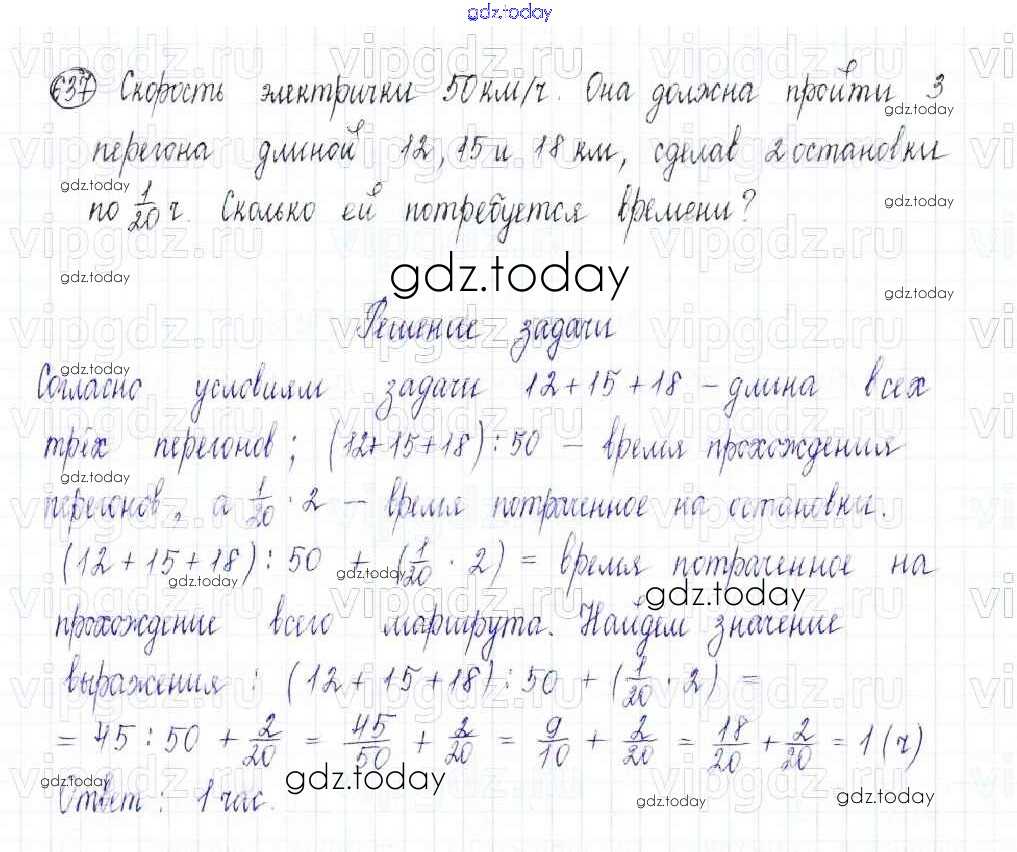 gdz.today
637 Скорость электрички 50 км/ч. Она должна пройти 3
перегона длиной 12, 15 и 18 км, сделав 2 остановки
по 1/20 ч. Сколько ей потребуется времени?
Решение задачи
Согласно условиям задачи 12 + 15 + 18 – длина всех
трёх перегонов; (12 + 15 + 18) : 50 – время прохождения
перегонов, а 1/20 · 2 – время потраченное на остановки.
(12 + 15 + 18) : 50 + (1/20 · 2) = время потраченное на
прохождение всего маршрута. Найдем значение
выражения : (12 + 15 + 18) : 50 + (1/20 · 2) =
= 45 : 50 + 2/20 = 45/50 + 2/20 = 9/10 + 2/20 = 18/20 + 2/20 = 1 (ч)
Ответ : 1 час.